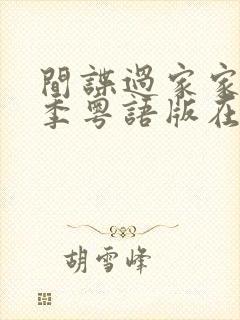 間諜過家家
季粵語版在
胡雪峰